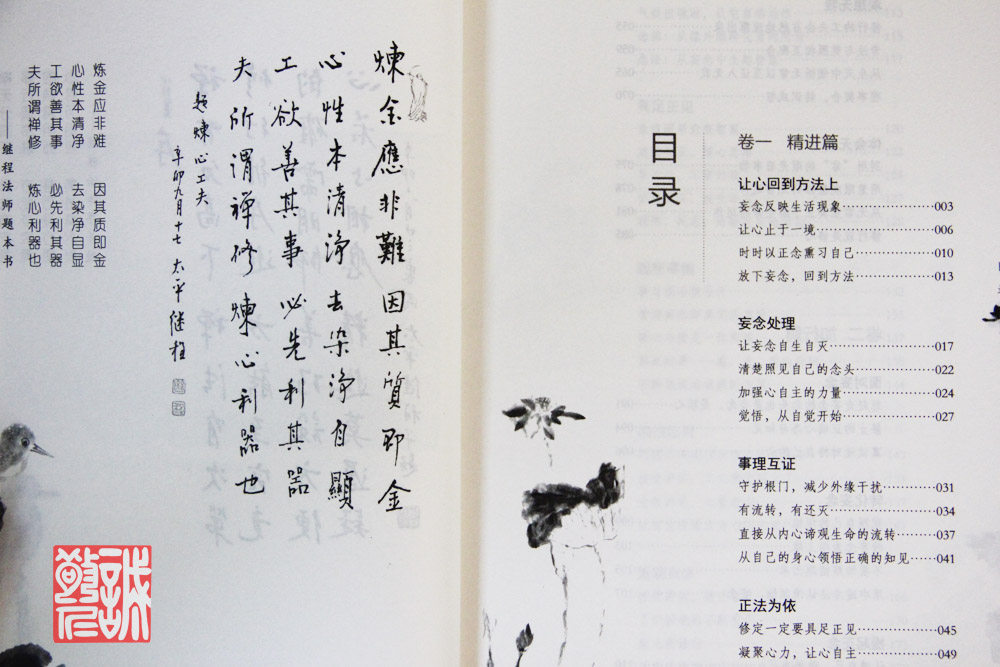 炼金应非难 因其质即金
心性本清净 去染净自显
工欲善其事 必先利其器
夫所谓禅修 炼心利器也
——继程法师题本书
煉金應非難 因其質即金
心性本清淨 去染淨自顯
工欲善其事 必先利其器
夫所謂禅修 煉心利器也
題煉心工夫
辛卯九月十七 太平 继程
目录
卷一 精进篇
让心回到方法上
妄念反映生活现象…………003
让心止于一境…………006
时时以正念熏习自己…………010
放下妄念，回到方法…………013
妄念处理
让妄念自生自灭…………017
清楚照见自己的念头…………022
加强心自主的力量…………024
觉悟，从自觉开始…………027
事理互证
守护根门，减少外缘干扰…………031
有流转，有还灭…………034
直接从内心谛观生命的流转…………037
从自己的身心领悟正确的知见……041
正法为依
修定一定要具足正见…………045
凝聚心力，让心自主…………049